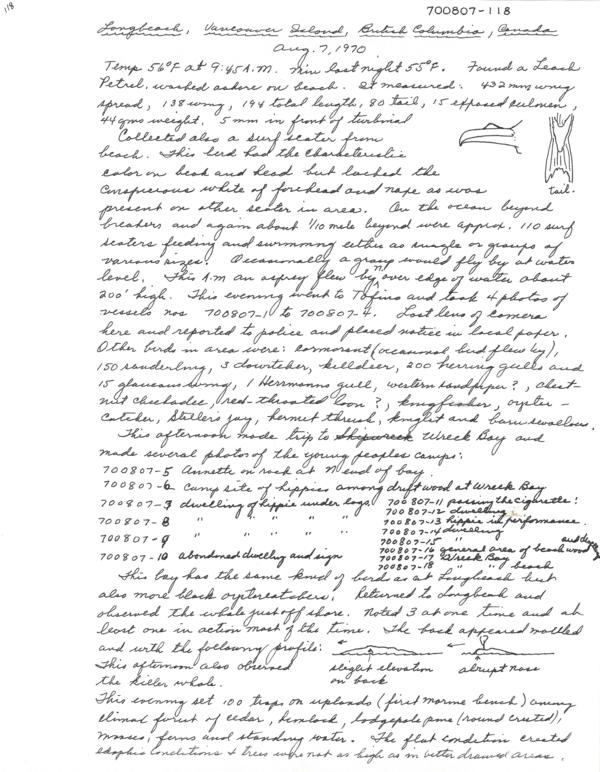 118
700807-118
Longbeach, Vancouver Island, British Columbia, Canada
Aug. 7, 1970
Temp 56°F at 9:45 A.M. Min last night 55°F. Found a Leach
Petrel, washed ashore on beach. It measured: 432 mm wing
spread, 138 wing, 194 total length, 80 tail, 15 exposed culmen,
44 gms weight. 5 mm in front of turbinal
Collected also a surf scoter from
beach. This bird had the characteristic
color on beak and head but lacked the
conspicuous white of forehead and nape as was
tail.
present on other scoter in area. On the ocean beyond
breakers and again about 1/10 mile beyond were approx. 110 surf
scoters feeding and swimming either as single or groups of
various sizes. Occasionally a group would fly by at water
level. This A.M an osprey flew by over edge of water about
200' high. This evening went to Tofino and took 4 photos of
vessels nos 700807-1 to 700807-4. Lost lens of camera
here and reported to police and placed notice in local paper.
Other birds in area were: cormorant (occasional bird flew by),
150 sanderling, 3 dowitcher, killdeer, 200 herring gulls and
15 glaucous wing, 1 Herrmanns gull, western sandpiper?, chest-
nut chickadee, red-throated loon?, kingfisher, oyster-
catcher, Steller's jay, hermit thrush, kinglet and barn swallow.
This afternoon made trip to Shipwreck Wreck Bay and
made several photos of the young peoples camps:
700807-5 Annette on rock at N end of bay.
700807-6 Camp site of hippies among driftwood at Wreck Bay
700807-7 dwelling of hippie under logs 700807-11 passing the cigarette!
700807-12 dwelling
700807-8 " " " " 700807-13 hippie in performance.
700807-14 dwelling
700807-9 " " " " 700807-15 "
700807-16 general area of beach wood
700807-10 abandoned dwelling and sign 700807-17 Wreck Bay
700807-18 " " beach
This bay has the same kind of birds as at Longbeach but
also more black oystercatchers. Returned to Longbeach and
observed the whale just off shore. Noted 3 at one time and at
least one in action most of the time. The back appeared mottled
and with the following profile:
This afternoon also observed slight elevation abrupt nose
the killer whale. on back
This evening set 100 traps on uplands (first marine bench) among
climax forest of cedar, hemlock, lodgepole pine (round crusted),
mosses, ferns and standing water. The flat condition created
edaphic conditions & trees were not as high as in better drained areas.